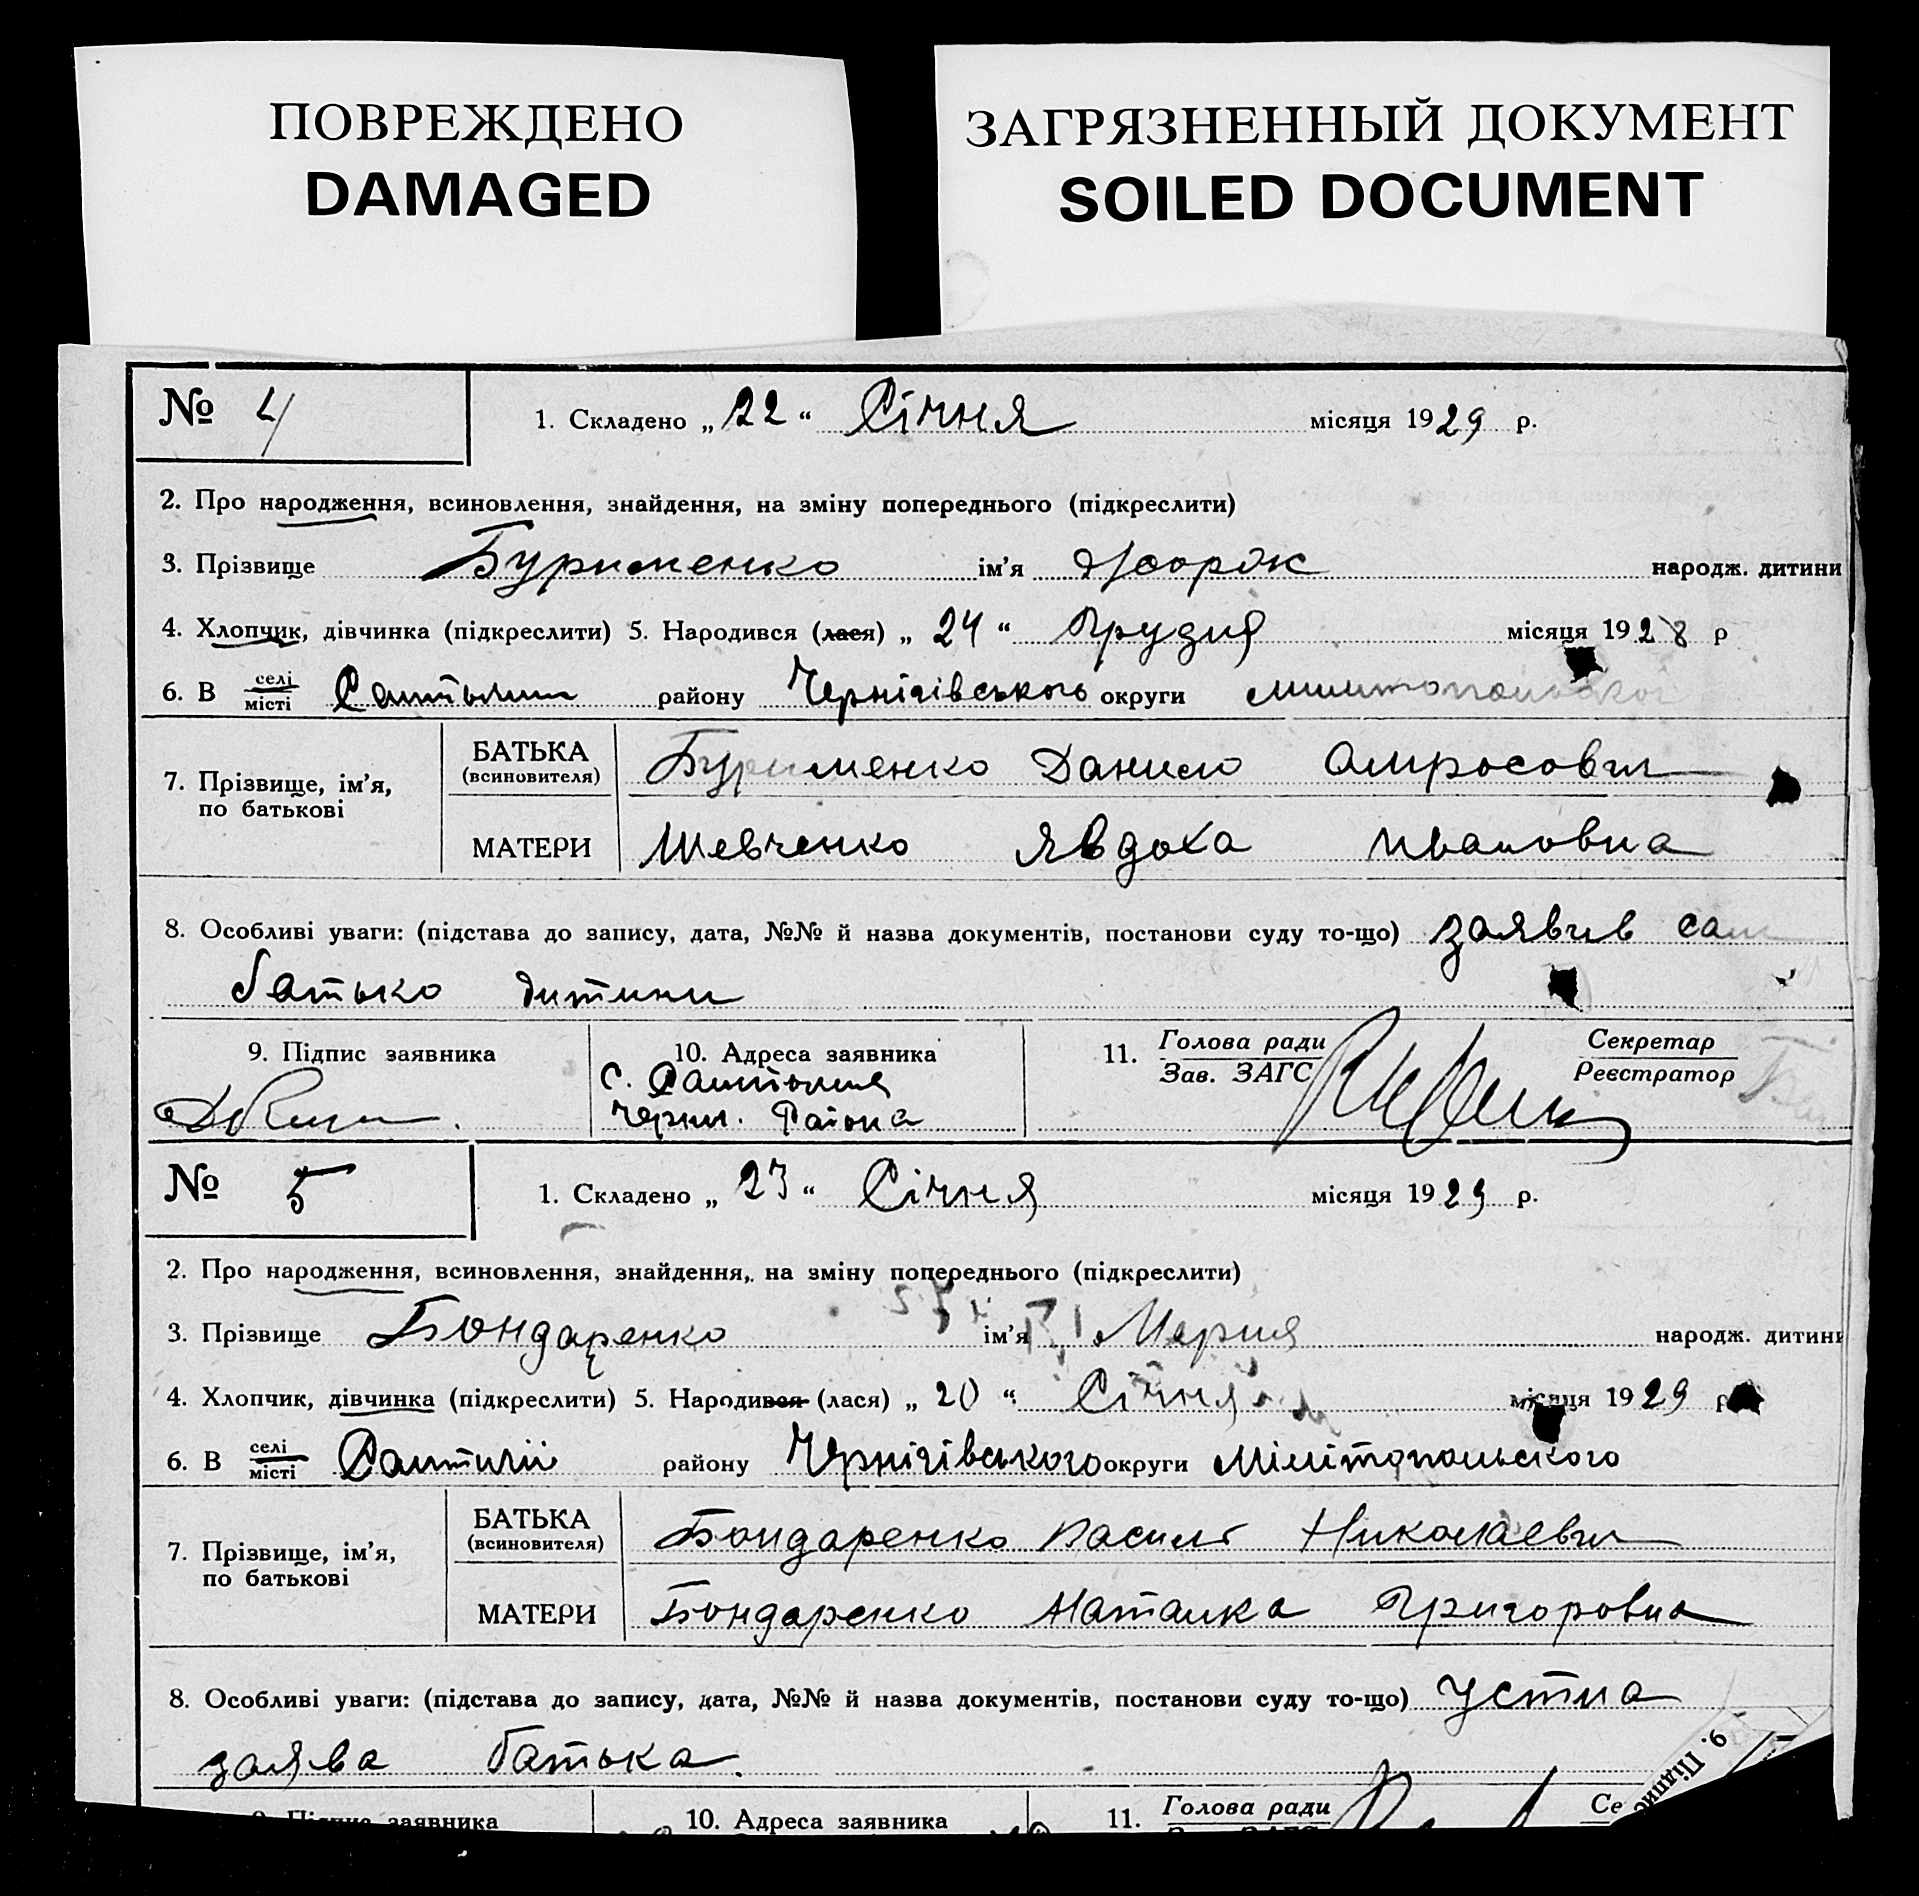 ПОВРЕЖДЕНО
DAMAGED
ЗАГРЯЗНЕННЫЙ ДОКУМЕНТ
SOILED DOCUMENT
№ 4
1. Складено „ 22 “ Січня місяця 1929 р.
2. Про народження, всиновлення, знайдення, на зміну попереднього (підкреслити)
3. Прізвище Бурименко ім’я Жорж народж. дитини
4. Хлопчик, дівчинка (підкреслити) 5. Народився (лася) „ 24 “ Грудня місяця 1928 р
6. В селі місті району Чернігівського округи
7. Прізвище, ім’я, по батькові
БАТЬКА (всиновителя) Бурименко Данило
МАТЕРИ Шевченко Явдоха Ивановна
8. Особливі уваги: (підстава до запису, дата, №№ й назва документів, постанови суду то-що) заявив сам
батько дитини
9. Підпис заявника
10. Адреса заявника
с.
Черни. Района
11. Голова ради Зав. ЗАГС
Секретар Реєстратор
№ 5
1. Складено „ 23 “ Січня місяця 1929 р.
2. Про народження, всиновлення, знайдення, на зміну попереднього (підкреслити)
3. Прізвище Бондаренко ім’я Мария народж. дитини
4. Хлопчик, дівчинка (підкреслити) 5. Народився (лася) „ 20 “ Січня місяця 1929 р
6. В селі місті району Чернігівського округи Мілітопольского
7. Прізвище, ім’я, по батькові
БАТЬКА (всиновителя) Бондаренко Василь Николаевич
МАТЕРИ Бондаренко Наталка Григоровна
8. Особливі уваги: (підстава до запису, дата, №№ й назва документів, постанови суду то-що) Устна
заява батька.
9. Підпис заявника
10. Адреса заявника
11. Голова ради
Се
9. Підпис